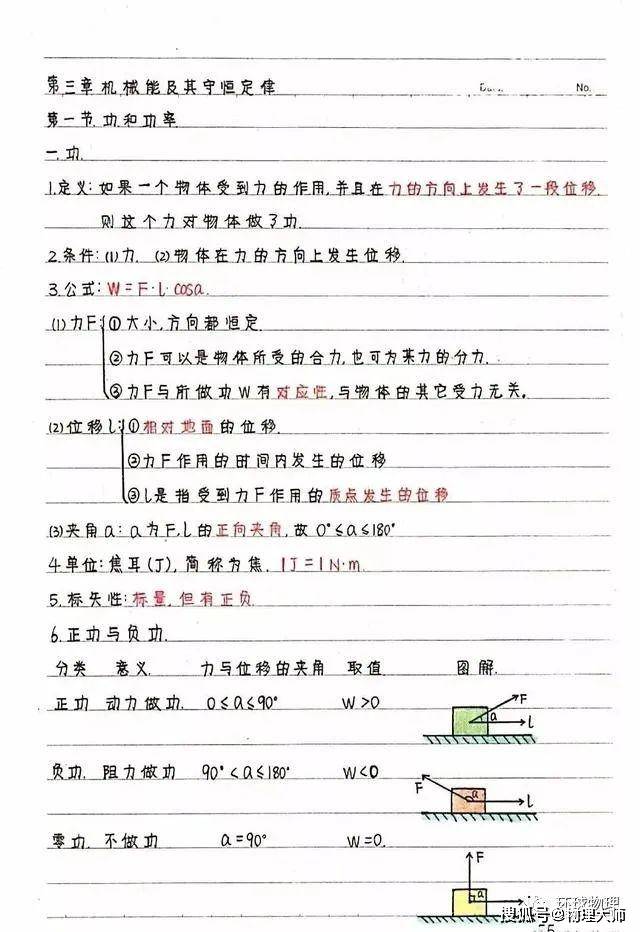 第三章机械能及其守恒定律
No.
第一节.功和功率
一.功.
1.定义:如果一个物体受到力的作用,并且在力的方向上发生了一段位移.
则这个力对物体做了功.
2.条件:(1)力. (2)物体在力的方向上发生位移.
3.公式:W=F·l·cosa.
(1)力F:①大小,方向都恒定.
②力F可以是物体所受的合力,也可为某力的分力.
③力F与所做功W有对应性,与物体的其它受力无关。
(2)位移l:①相对地面的位移.
②力F作用的时间内发生的位移
③l是指受到力F作用的质点发生的位移
(3)夹角a:a为F,l的正向夹角,故0°≤a≤180°
4.单位:焦耳(J),简称为焦. 1J=1N·m.
5.标矢性:标量,但有正负.
6.正功与负功.
分类 意义. 力与位移的夹角 取值. 图解.
正功 动力做功. 0≤a≤90° W>0
F
a
l
负功. 阻力做功 90°<a≤180° W<0
F
a
l
零功. 不做功 a=90° W=0.
F
a
环球物理
搜狐号@物理大师